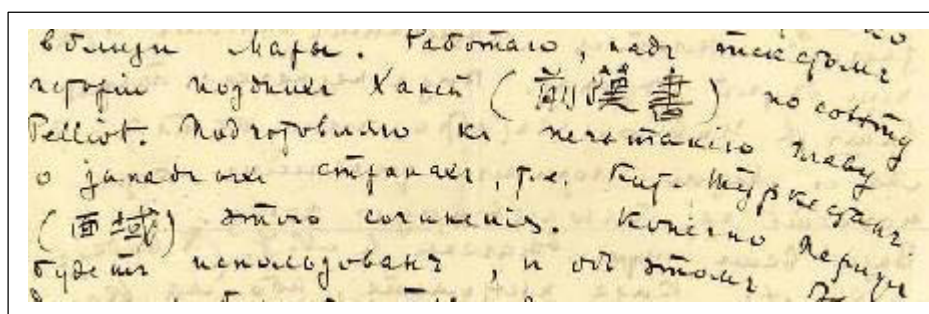 вблизи Мары. Работаю, надъ текстомъ
исторіи позднихъ Ханей (前漢書) по совѣту
Pelliot. Подготовляю къ печатанію главу
о западныхъ странахъ, т.е. Кит. Туркестанъ
(西域) этого сочиненія. Конечно
будетъ использованъ, и объ этомъ